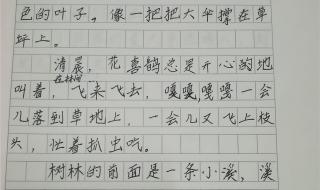 色的叶子，像一把把大伞撑在草
坪上。
清晨，花喜鹊总是开心的地
叫着，在林间飞来飞去，嘎嘎嘎一会
儿落到草地上，一会儿又飞上枝
头，忙着扒虫吃。
树林的前面是一条小溪，溪